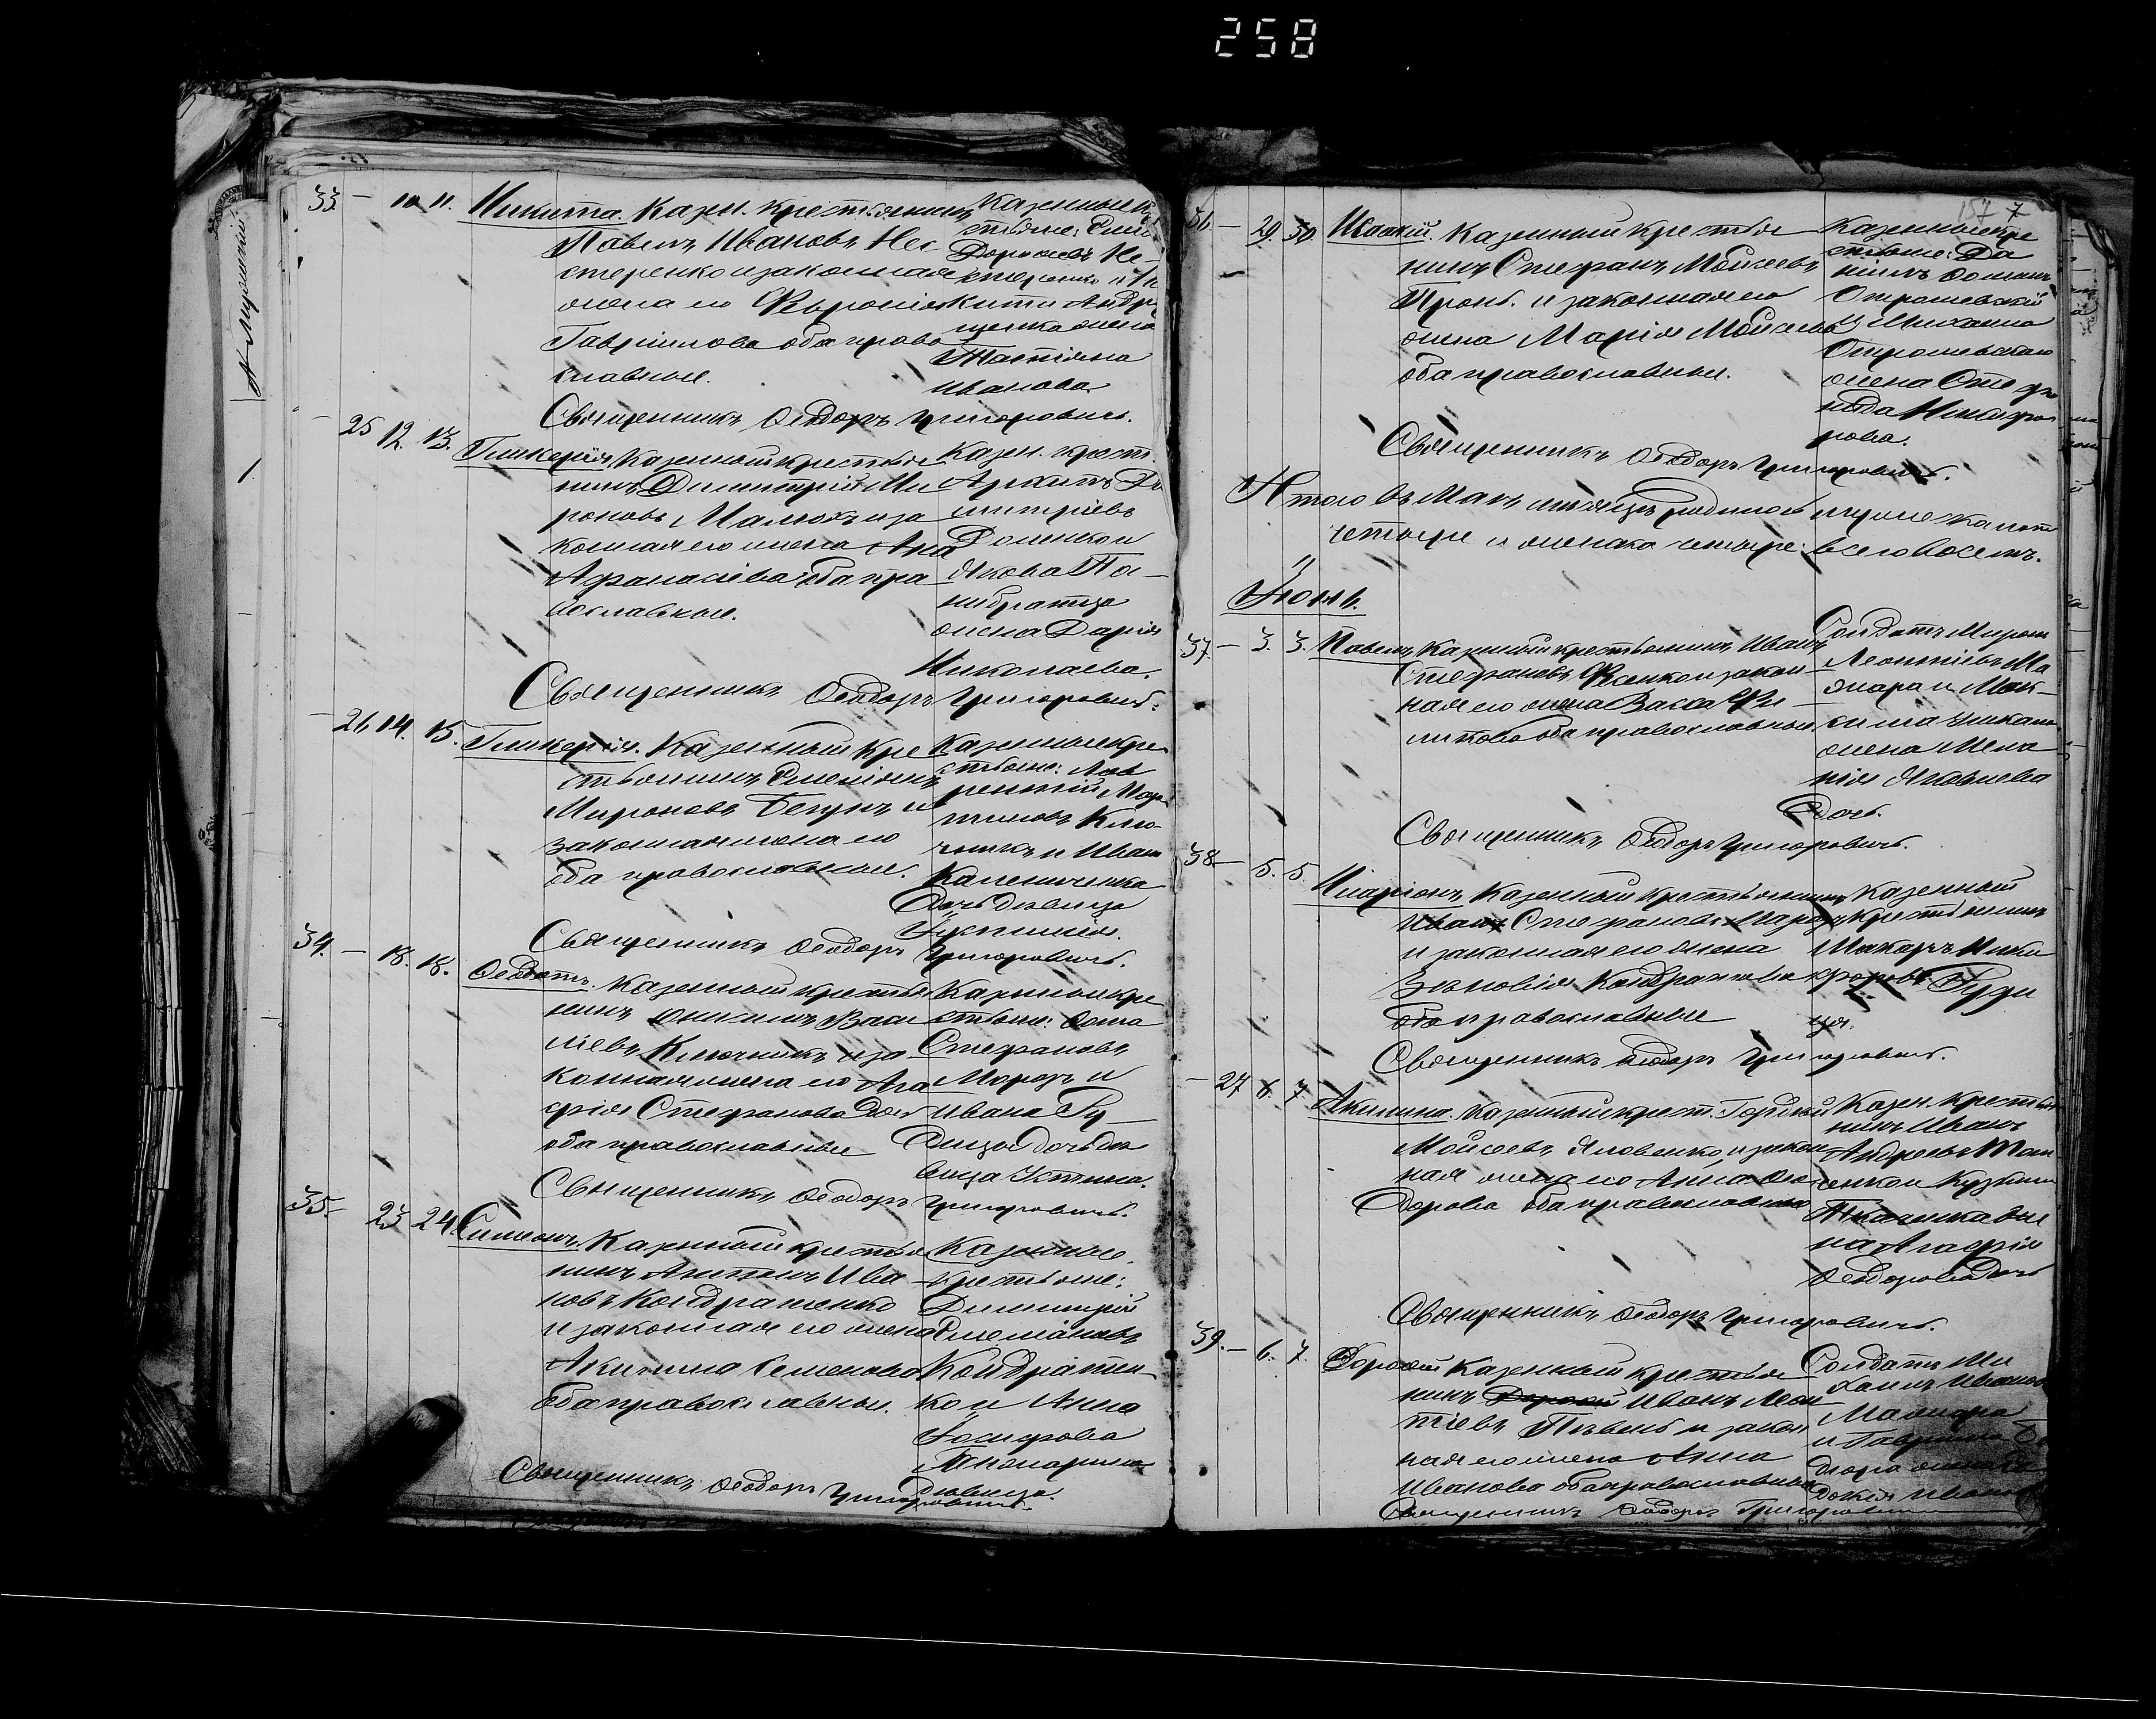 258
33. — 10. 11. Никита. Казен. крестьянинъ
Павелъ Ивановъ Не-
стеренко и законная
жена его Февронія
Гавріилова оба право
славные.
Казенные кре
стьяне:
Дорофеевъ Не-
стеренко и
Андре
щенка жена
Татіана
Иванова.
Священникъ Ѳеодоръ Григоровичъ.
— 25 12. 13. Гликерія, Казенный крестья
нинъ Димитрій Ми
роновъ Малюкъ и за
конная его жена Анна
Афанасіева оба пра
вославные.
Казен. крест.
Архипъ Ди
митріевъ
Доленко и
Якова Па-
нибратца
жена Дарія
Николаева.
Священникъ Ѳеодоръ Григоровичъ.
— 26 14. 15. Гликерія. Казенный кре
стьянинъ Емеліанъ
Мироновъ Бегунъ и
законная жена его
оба православные.
Казенные кре
стьяне: Лав
рентій Мар
тиновъ Клю-
чникъ и Иван
Калениченка
дочь девица
Священникъ Ѳеодоръ Григоровичъ.
34. — 18. 18. Ѳеодотъ. Казенный крестья
нинъ Василіевъ Ключникъ и за
конная жена его Ага
фія Степанова
оба православные
Казенные кре
стьяне: Ѳома
Стефановъ
Морозъ и
Ивана Гу
дица дочь де
вица Устина.
Священникъ Ѳеодоръ Григоровичъ.
35. — 23 24. Симеонъ. Казенный крестья
нинъ Антонъ Ива-
новъ Кондратенко
и законная его жена
Акилина Семенова
оба православные.
Казенные
крестьяне:
Димитрій
Емеліановъ
Кондратен
ко и Анна
Іосифова
Пономарева
девица.
Священникъ Ѳеодоръ Григоровичъ.
157 7
36. — 29. 30. Исаакій. Казенный крестья
нинъ Стефанъ Моисеевъ
и законная его
жена Марія Моисеева
оба православные.
Казенные кре
стьяне: Да
ніилъ Ѳоминъ
Отрошевскій
и Михаила
Отрошевскаго
жена Сте
нида Никифо
рова.
Священникъ Ѳеодоръ Григоровичъ.
Итого въ Маѣ мѣсяцѣ родилось мужеска пола
четыре и женска четыре: всего восемь.
Іюнь.
37. — 3. 3. Павелъ, Казенный крестьянинъ Иванъ
Стефановъ Фесенко и закон
ная его жена Васса Фи-
липова оба православные
Солдатъ Миронъ
Леонтіевъ Ма
жара и Мак-
сима
жена Мела
нія Яковлева
дочь.
Священникъ Ѳеодоръ Григоровичъ.
38. — 5. 5. Иларіонъ, Казенный крестьянинъ
Иванъ Стефановъ Марозъ
и законная его жена
Зиновія Кондратова
оба православные
Казенный
крестьянинъ
Макаръ Ники
форовъ Гуди
ца.
Священникъ Ѳеодоръ Григоровичъ.
— 27 6. 7 Акилина. Казенный крест. Гордѣй
Моисеевъ Яковенко, и закон
ная жена его Анна Ѳео
дорова оба православные
Казен. крестья
нинъ Иванъ
Андреевъ
енко и Кузьми
Ткаченка
на Агафія
Ѳеодорова дочь
Священникъ Ѳеодоръ Григоровичъ.
39. — 6. 7. Дорофей Казенный крестья
нинъ Иванъ Леон
тіевъ Пивень и закон
ная его жена Анна
Иванова оба православные
Солдатъ Ми
хаилъ Иванов
Мажара
и Гавріила
жена Ев
докія Иванова
Священникъ Ѳеодоръ Григоровичъ